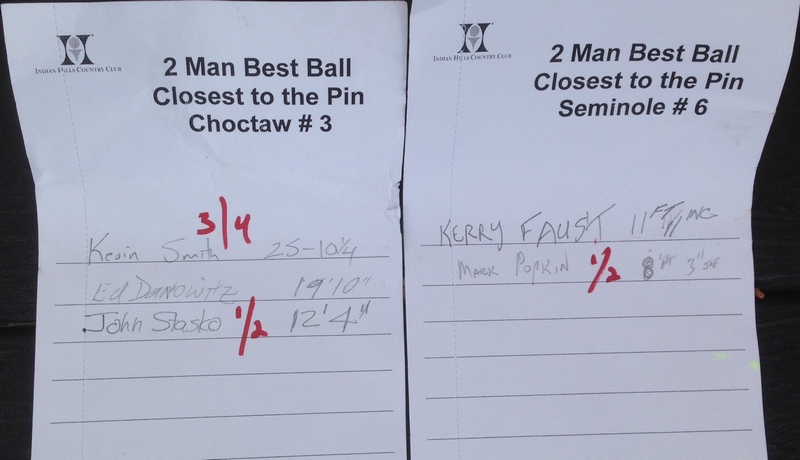 Indian Hills Country Club
2 Man Best Ball
Closest to the Pin
Choctaw # 3
3/4
Kevin Smith 25-10 1/4
Ed Danowitz 19'10"
John Stasko 1/2 12'4"
Indian Hills Country Club
2 Man Best Ball
Closest to the Pin
Seminole # 6
KERRY FAUST 11 FT 11 INC
MARK POPKIN 1/2 8 FT 3"